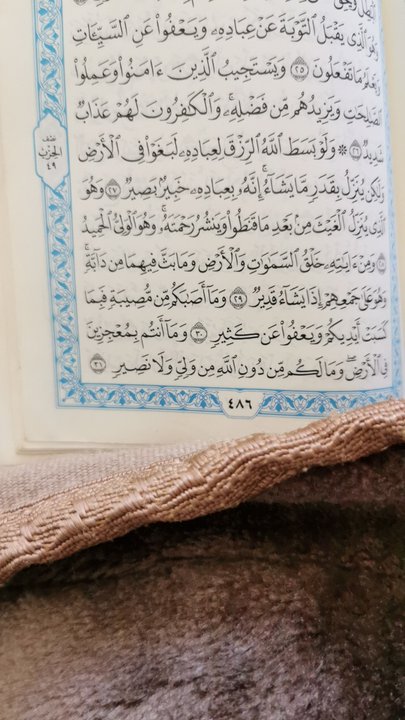 وَهُوَ ٱلَّذِى يَقْبَلُ ٱلتَّوْبَةَ عَنْ عِبَادِهِۦ وَيَعْفُوا۟ عَنِ ٱلسَّيِّـَٔاتِ
وَيَعْلَمُ مَا تَفْعَلُونَ ٢٥ وَيَسْتَجِيبُ ٱلَّذِينَ ءَامَنُوا۟ وَعَمِلُوا۟
ٱلصَّـٰلِحَـٰتِ وَيَزِيدُهُم مِّن فَضْلِهِۦ ۚ وَٱلْكَـٰفِرُونَ لَهُمْ عَذَابٌ
شَدِيدٌ ٢٦ ۞ وَلَوْ بَسَطَ ٱللَّهُ ٱلرِّزْقَ لِعِبَادِهِۦ لَبَغَوْا۟ فِى ٱلْأَرْضِ
وَلَـٰكِن يُنَزِّلُ بِقَدَرٍ مَّا يَشَآءُ ۚ إِنَّهُۥ بِعِبَادِهِۦ خَبِيرٌۢ بَصِيرٌ ٢٧ وَهُوَ
ٱلَّذِى يُنَزِّلُ ٱلْغَيْثَ مِنۢ بَعْدِ مَا قَنَطُوا۟ وَيَنشُرُ رَحْمَتَهُۥ ۚ وَهُوَ ٱلْوَلِىُّ ٱلْحَمِيدُ
٢٨ وَمِنْ ءَايَـٰتِهِۦ خَلْقُ ٱلسَّمَـٰوَٰتِ وَٱلْأَرْضِ وَمَا بَثَّ فِيهِمَا مِن دَآبَّةٍ ۚ
وَهُوَ عَلَىٰ جَمْعِهِمْ إِذَا يَشَآءُ قَدِيرٌ ٢٩ وَمَآ أَصَـٰبَكُم مِّن مُّصِيبَةٍ فَبِمَا
كَسَبَتْ أَيْدِيكُمْ وَيَعْفُوا۟ عَن كَثِيرٍ ٣٠ وَمَآ أَنتُم بِمُعْجِزِينَ
فِى ٱلْأَرْضِ ۖ وَمَا لَكُم مِّن دُونِ ٱللَّهِ مِن وَلِىٍّ وَلَا نَصِيرٍ ٣١
٤٨٦
نصف
الحزب
٤٩